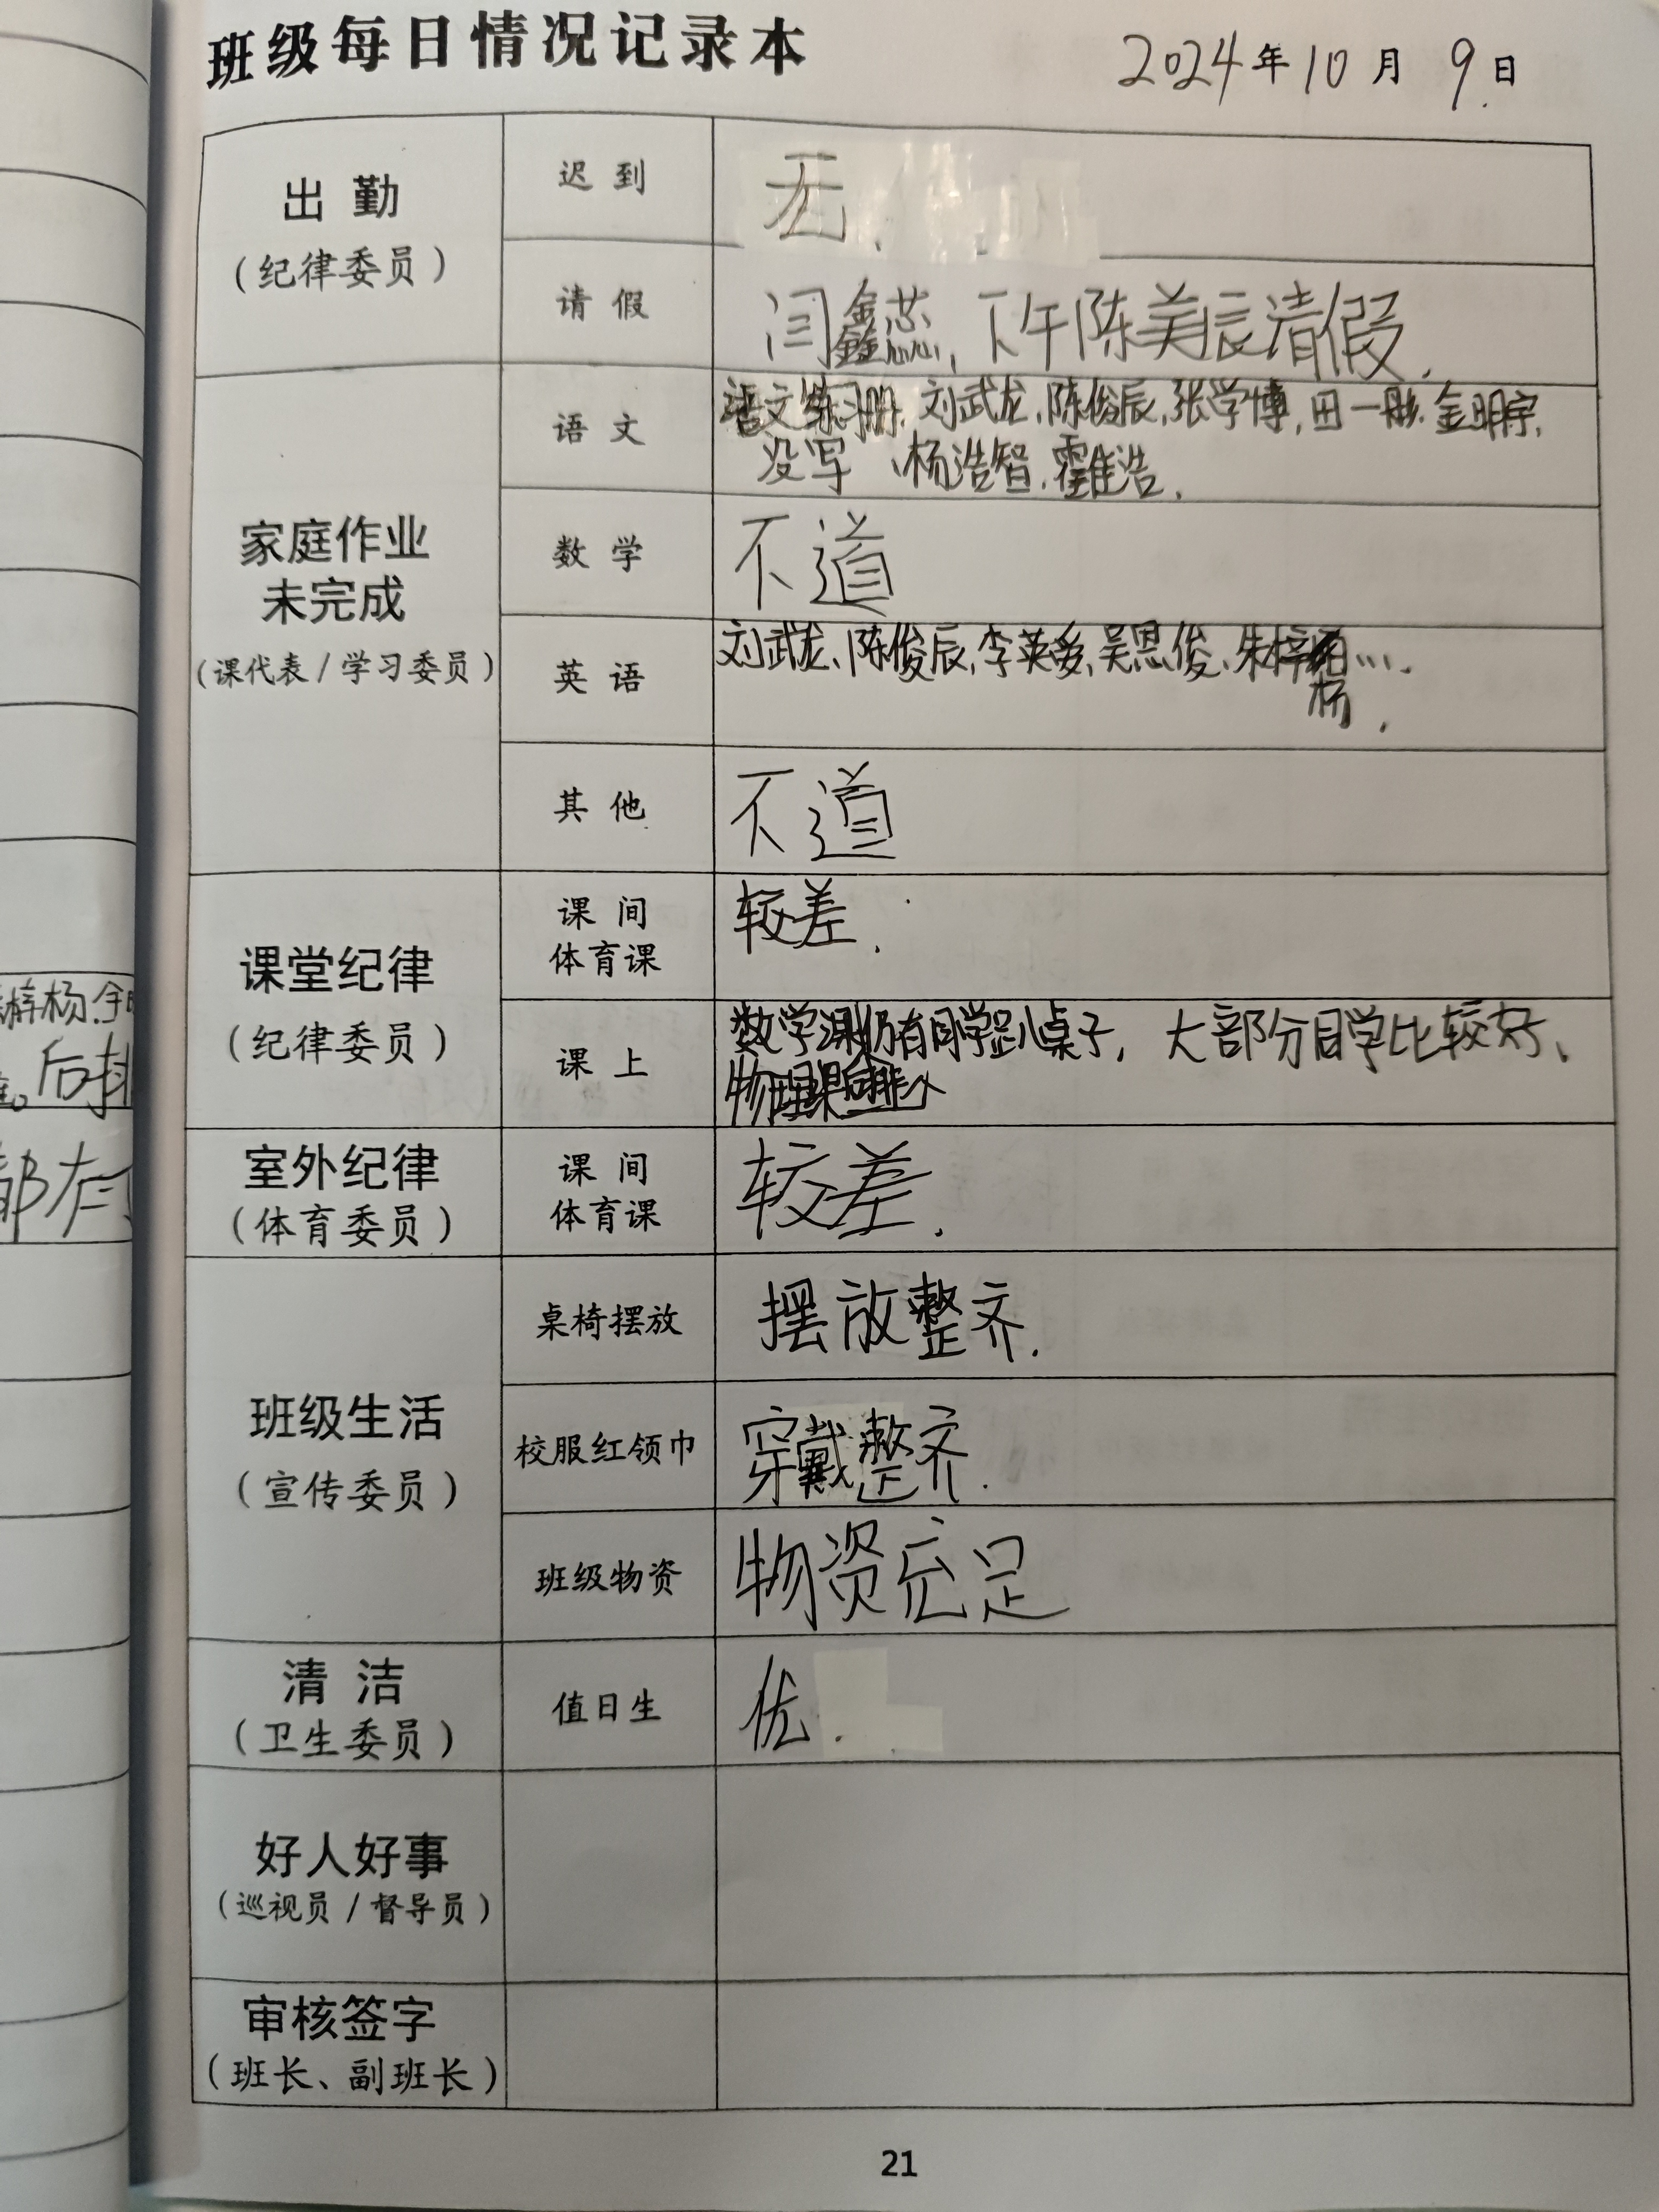 班级每日情况记录本
2024年10月9日
出勤
（纪律委员）
迟到
无.
请假
闫鑫蕊,下午陈美辰请假.
家庭作业
未完成
（课代表/学习委员）
语文
语文练习册.刘武龙.陈俊辰.张学博,田一彤.金明宇,
没写、杨浩智.霍佳浩.
数学
不道
英语
刘武龙、陈俊辰,李英爱,吴思俊、朱梓
杨.
其他
不道
课堂纪律
（纪律委员）
课间
体育课
较差.
课上
数学课仍有同学趴桌子,大部分同学比较好、
物理课
室外纪律
（体育委员）
课间
体育课
较差.
班级生活
（宣传委员）
桌椅摆放
摆放整齐.
校服红领巾
穿戴整齐.
班级物资
物资充足
清洁
（卫生委员）
值日生
优.
好人好事
（巡视员/督导员）
审核签字
（班长、副班长）
21
梓杨.
后排
都在